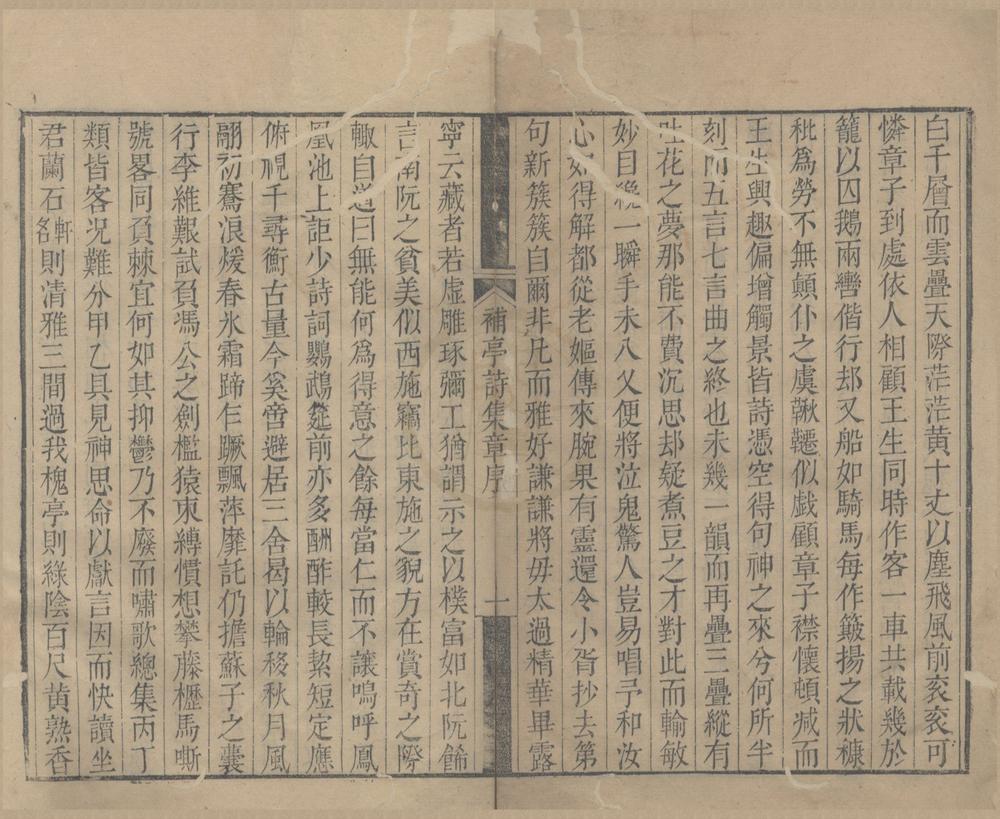 白千層而雲疊天際茫茫黃十丈以塵飛風前衮衮可
憐章子到處依人相顧王生同時作客一車共載幾於
籠以囚鵝兩轡偕行却又船如騎馬每作簸揚之狀糠
秕爲勞不無顛仆之虞鞦韆似戱顧章子襟懷頓减而
王生興趣偏增觸景皆詩憑空得句神之來兮何所半
刻而五言七言曲之終也未幾一韻而再疊三疊縱有
吐花之夢那能不費沉思却疑煮豆之才對此而輸敏
妙目纔一瞬手未八叉便將泣鬼驚人豈易唱予和汝
心如得解都從老嫗傳來腕果有靈還令小胥抄去第
句新簇簇自爾非凡而雅好謙謙將毋太過精華畢露
補亭詩集章序
一
寧云藏者若虛雕琢彌工猶謂示之以樸富如北阮餙
言南阮之貧美似西施竊比東施之貌方在賞奇之際
輙自道曰無能何爲得意之餘每當仁而不讓鳴呼鳳
凰池上詎少詩詞鸚鵡筵前亦多酬酢較長絜短定應
俯視千尋衡古量今奚啻避居三舍曷以輪移秋月風
翮初騫浪煖春氷霜蹄乍蹶飄萍靡託仍擔蘇子之囊
行李維艱試負馮公之劍檻猿朿縛慣想攀藤櫪馬嘶
號畧同負棘宜何如其抑鬱乃不廢而嘯歌總集丙丁
類皆客况難分甲乙具見神思命以獻言因而快讀坐
君蘭石軒名則清雅三間過我槐亭則綠陰百尺黄熟香